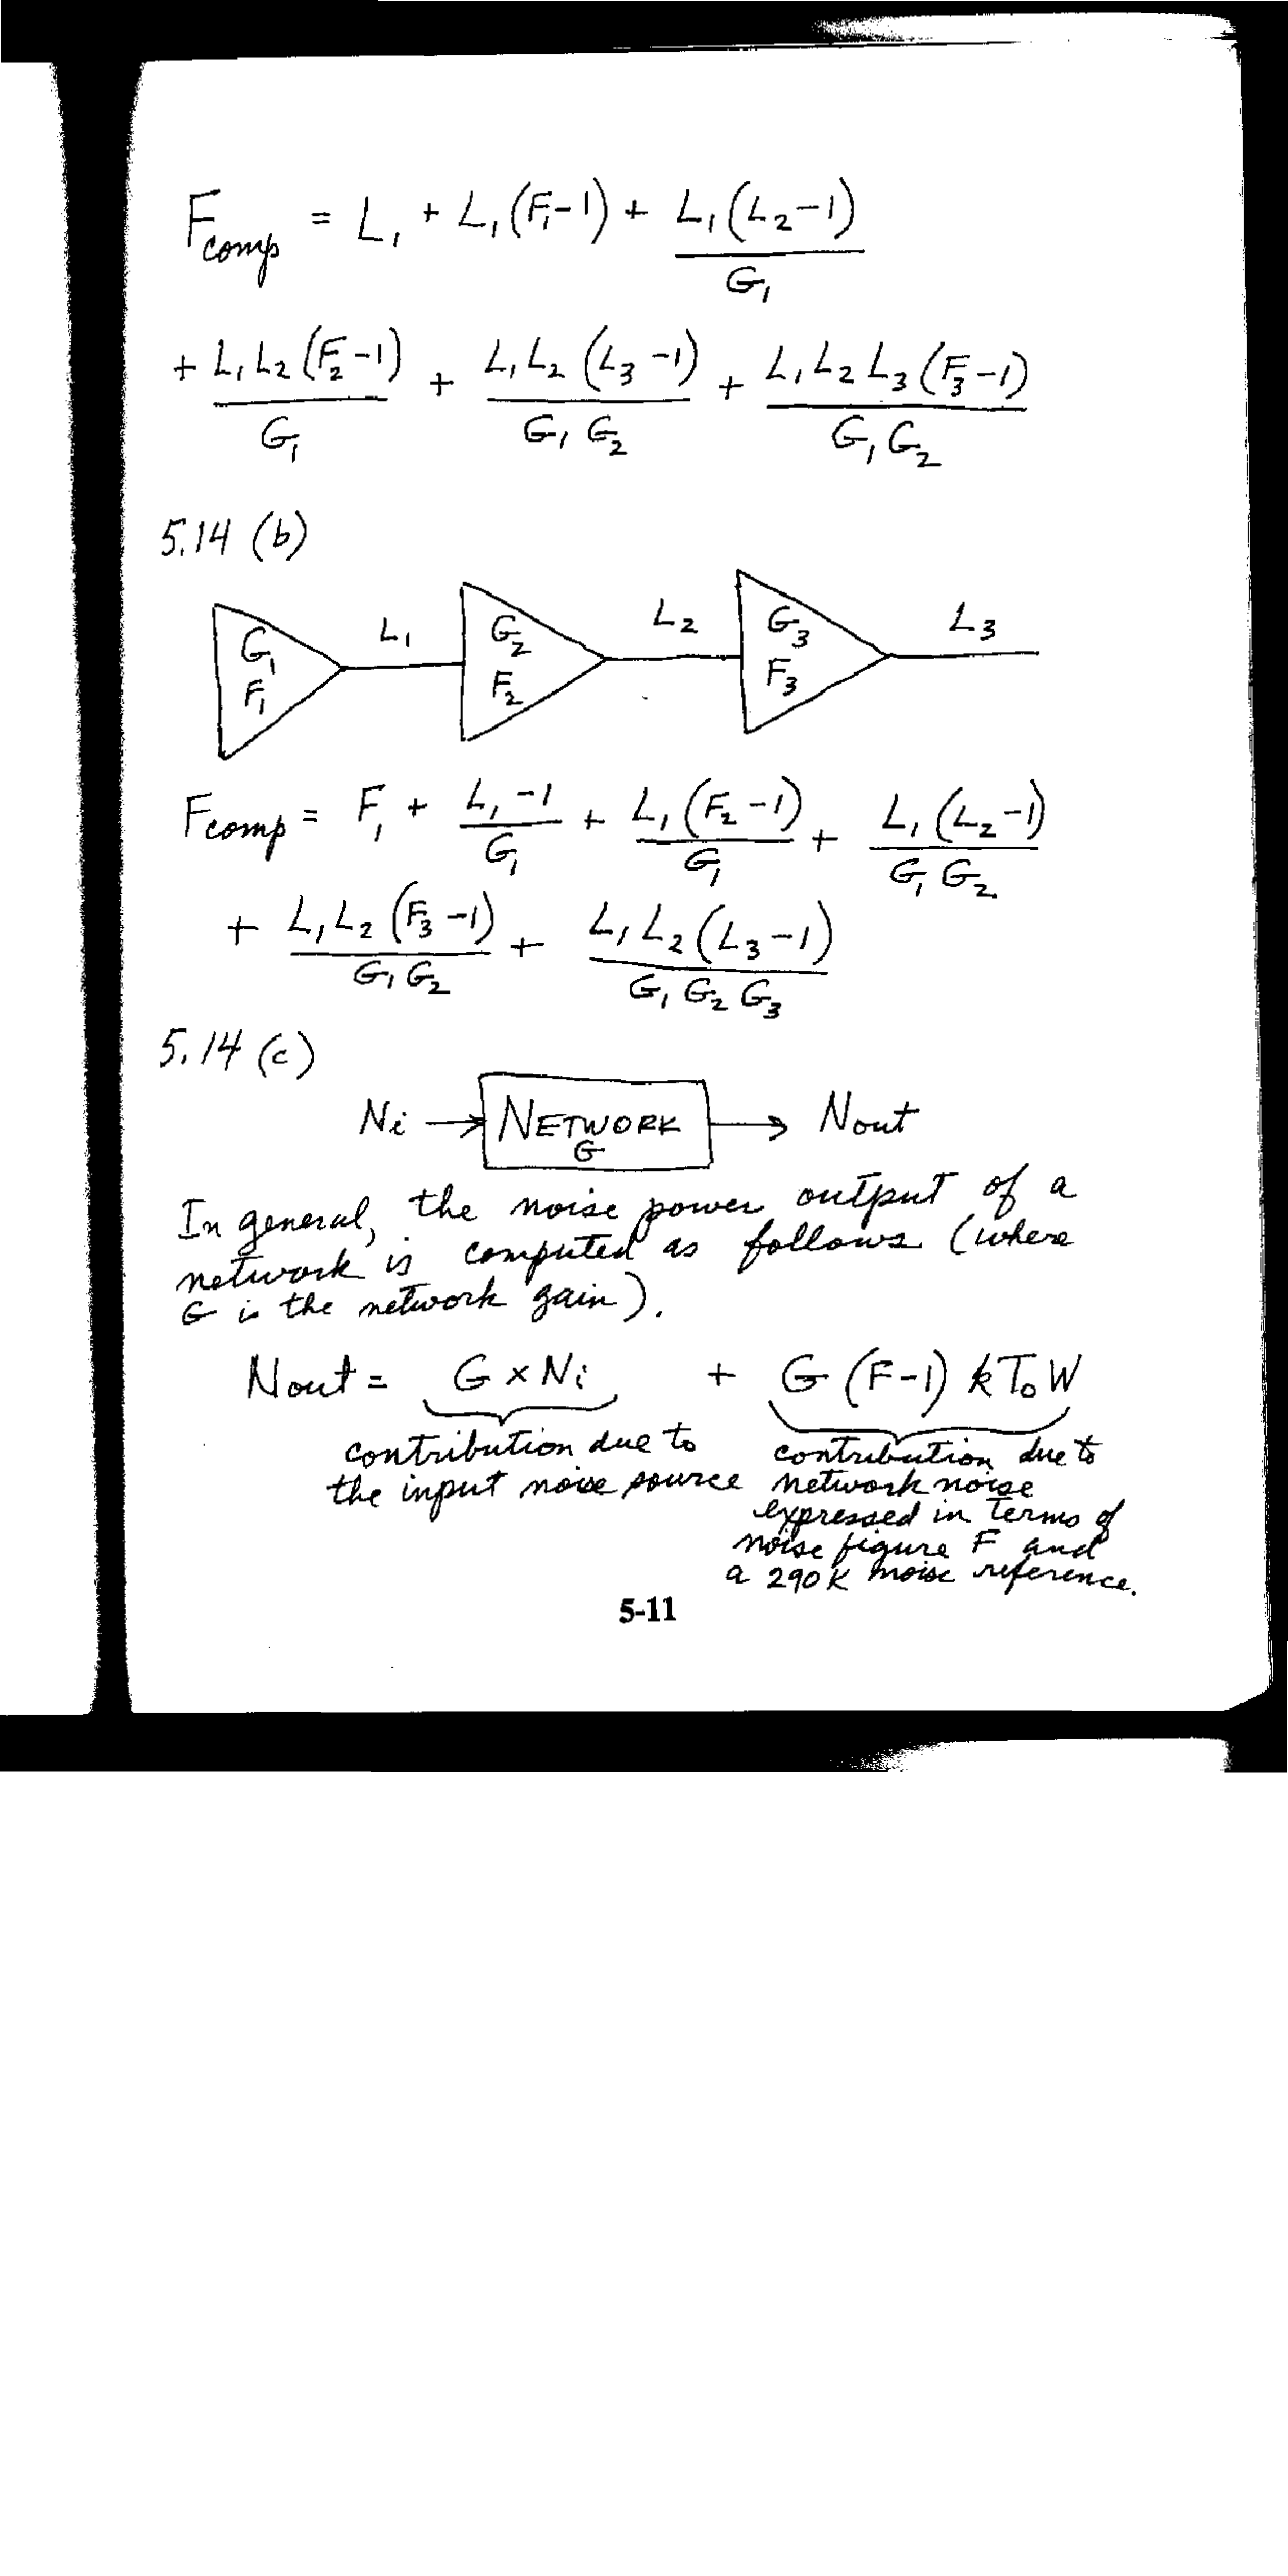 F_comp = L₁ + L₁(F₁-1) + L₁(L₂-1)/G₁
+ L₁L₂(F₂-1)/G₁ + L₁L₂(L₃-1)/G₁G₂ + L₁L₂L₃(F₃-1)/G₁G₂
5.14 (b)
G₁ F₁ L₁ G₂ F₂ L₂ G₃ F₃ L₃
F_comp = F₁ + L₁-1/G₁ + L₁(F₂-1)/G₁ + L₁(L₂-1)/G₁G₂
+ L₁L₂(F₃-1)/G₁G₂ + L₁L₂(L₃-1)/G₁G₂G₃
5.14 (c)
Ni → NETWORK G → Nout
In general, the noise power output of a
network is computed as follows (where
G is the network gain).
Nout = G × Ni + G (F-1) kT₀W
contribution due to
the input noise source
contribution due to
network noise
expressed in terms of
noise figure F and
a 290K noise reference.
5-11